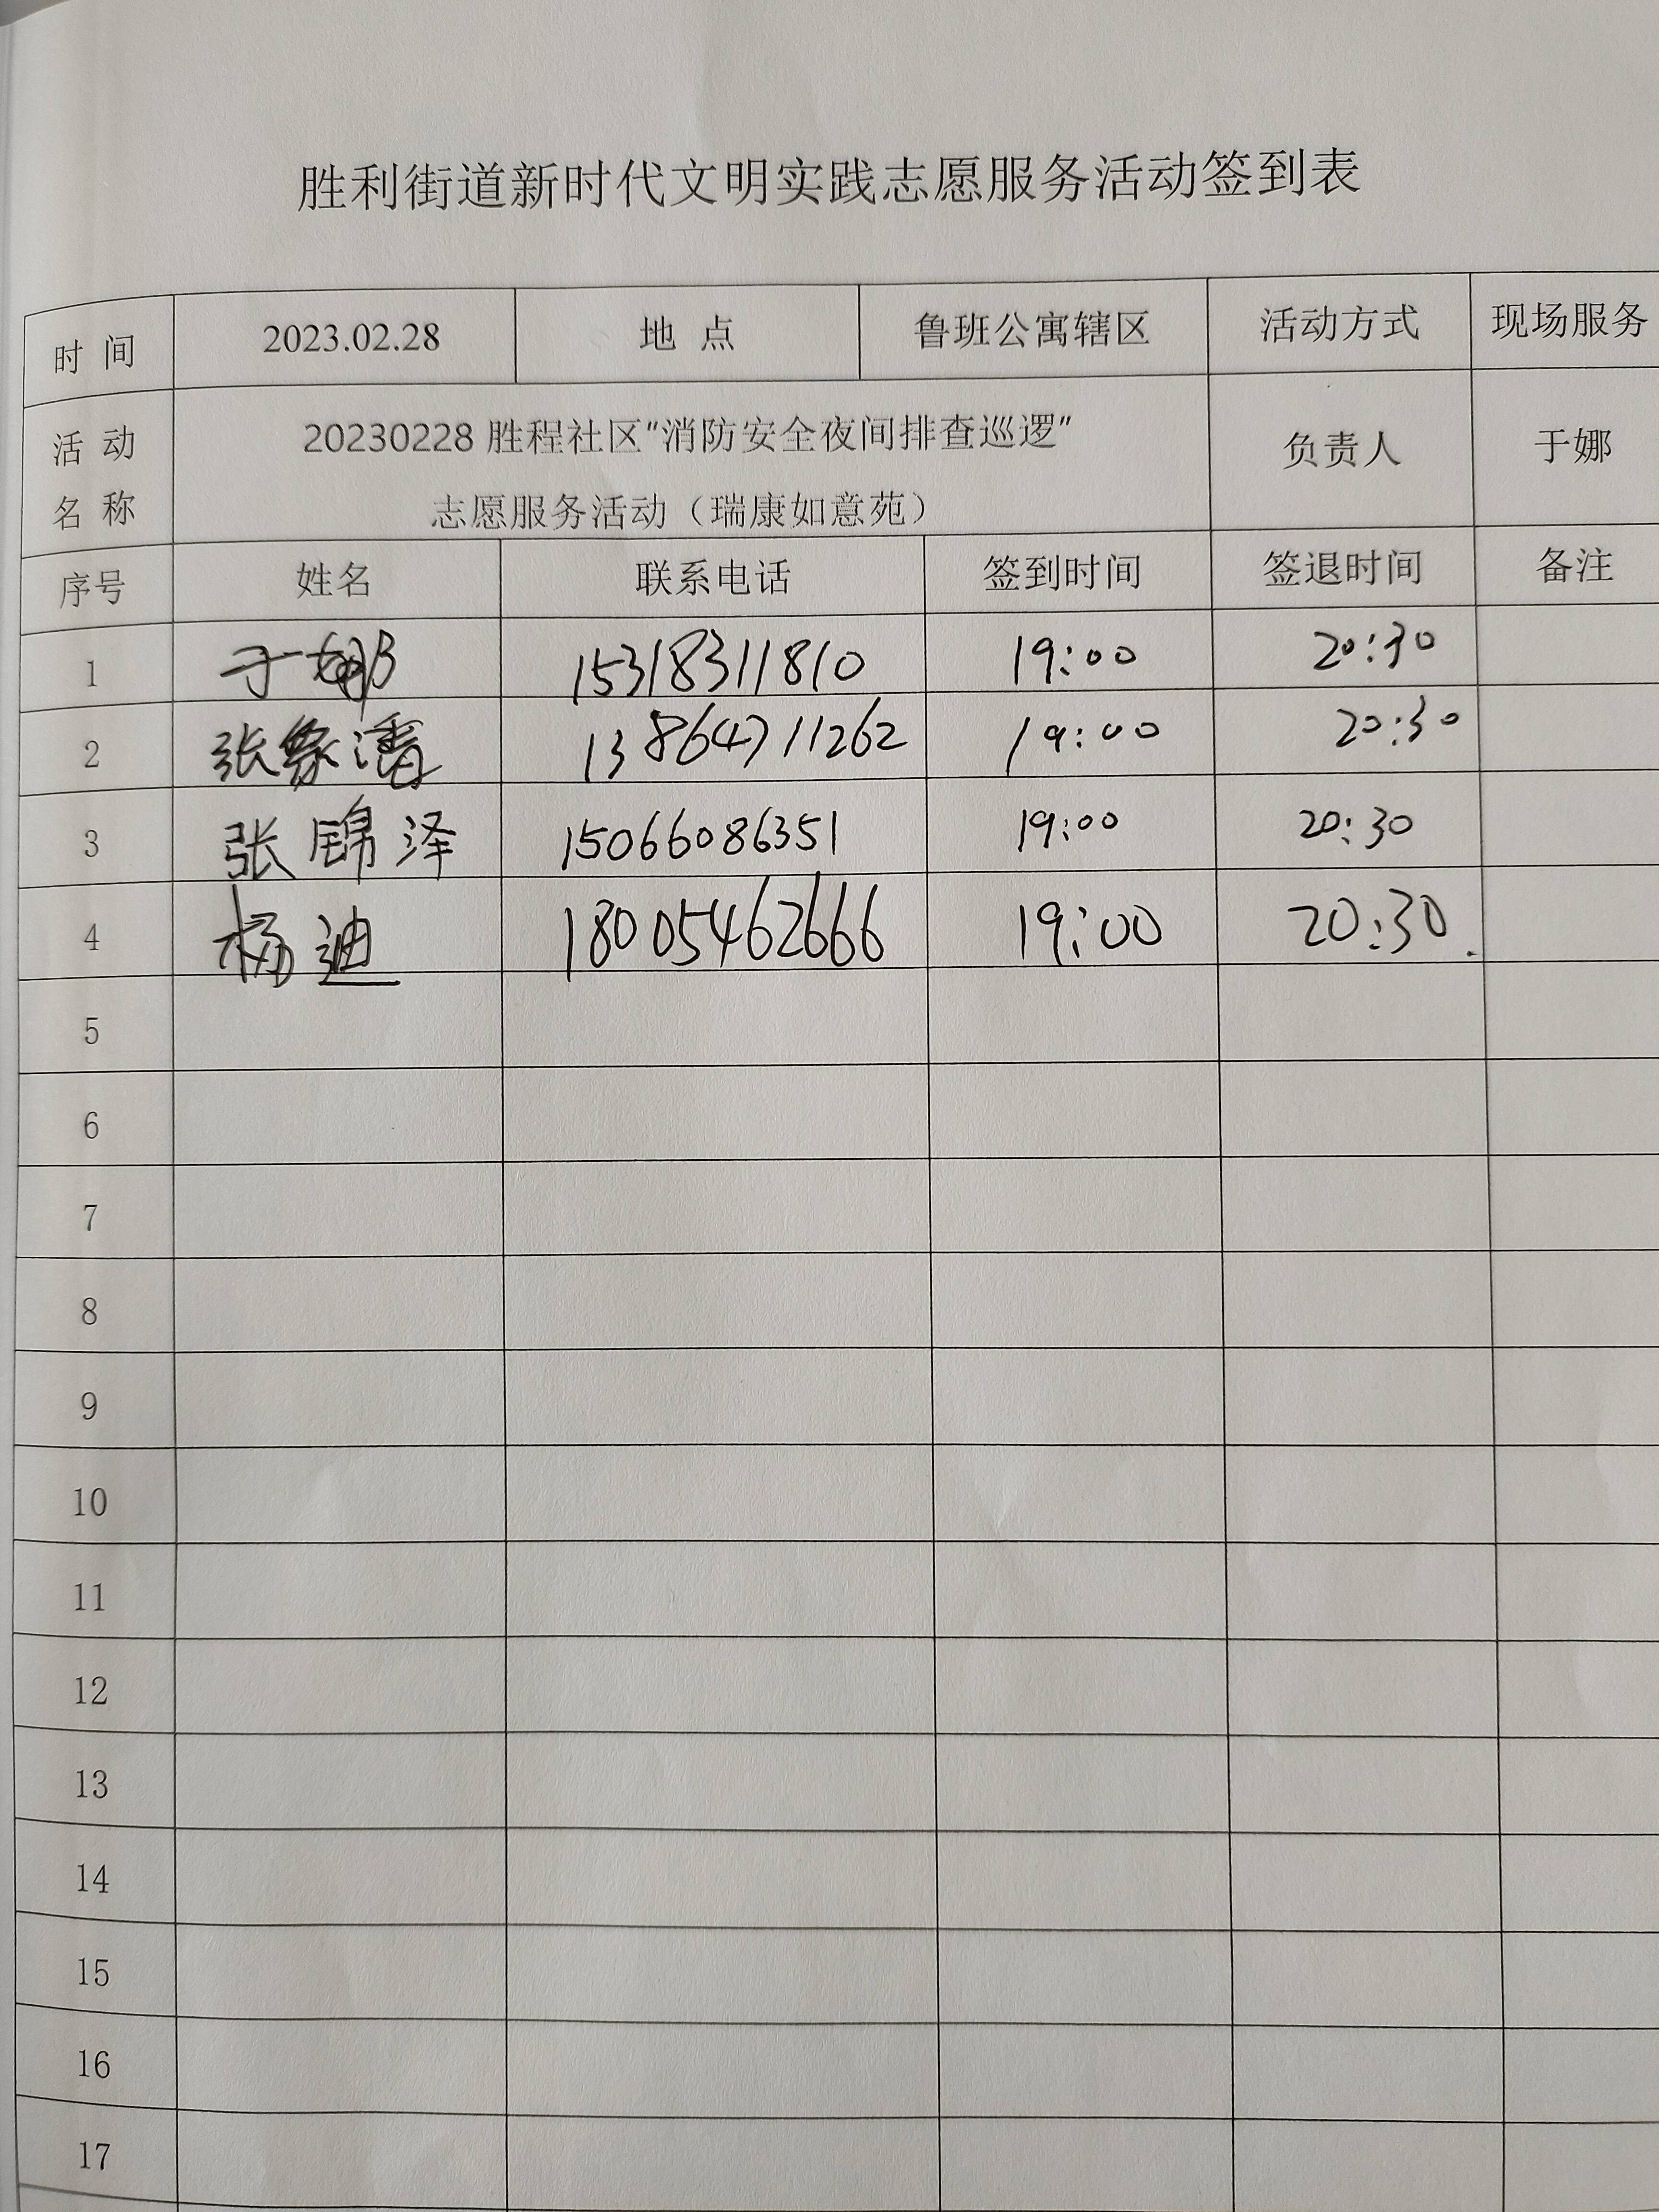 胜利街道新时代文明实践志愿服务活动签到表
时 间 2023.02.28 地 点 鲁班公寓辖区 活动方式 现场服务
活 动 名 称 20230228 胜程社区“消防安全夜间排查巡逻” 负责人 于娜
志愿服务活动（瑞康如意苑）
序号 姓名 联系电话 签到时间 签退时间 备注
1 于娜 15318311810 19:00 20:30
2 张 潘 13864711262 19:00 20:30
3 张锦泽 15066086351 19:00 20:30
4 杨迪 18005462666 19:00 20:30.
5
6
7
8
9
10
11
12
13
14
15
16
17